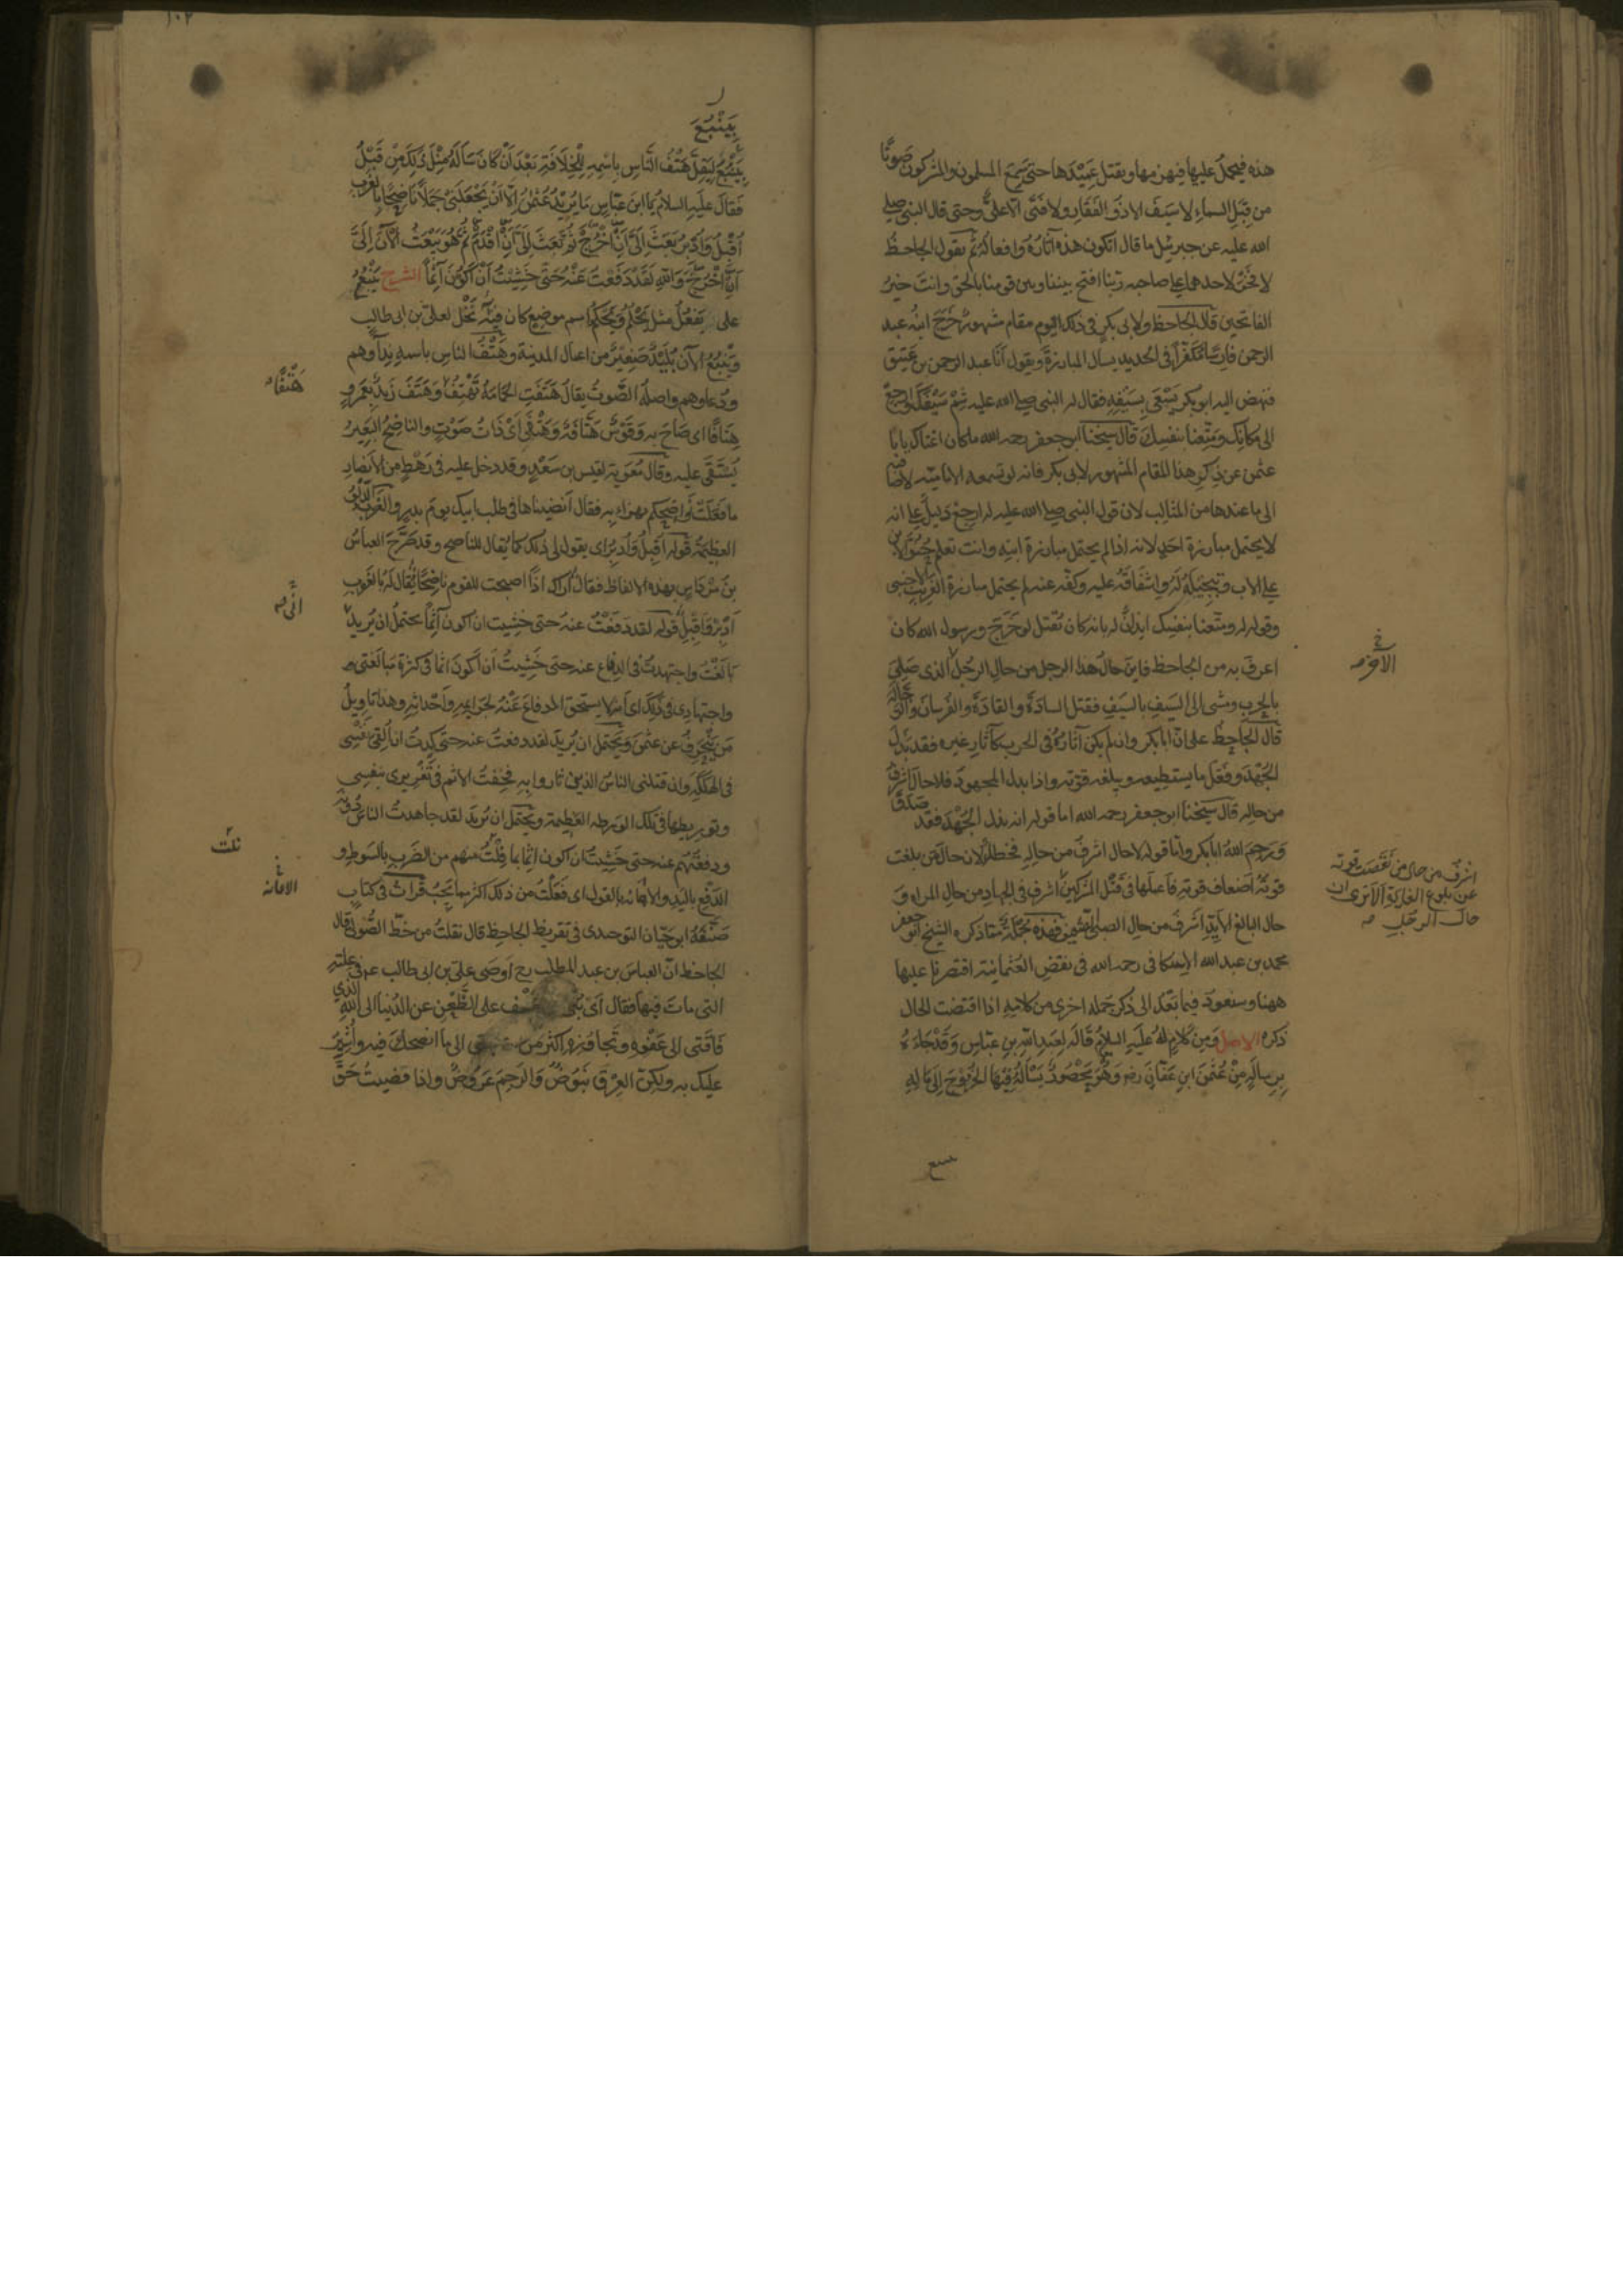 هذه فيحمل عليها فيهزمها ويقتل عميدها حتى سمع المسلمون والمشركون صوتًا
من قبل السماء لا سيف الا ذو الفقار ولا فتى الا علىّ وحتى قال النبى صلى
الله عليه عن جبرئيل ما قال اتكون هذه آثاره وافعاله ثم يقول الجاحظ
لا فخر لاحدهما على صاحبه ربنا افتح بيننا وبين قومنا بالحق وانت خير
الفاتحين قال الجاحظ ولابى بكر فى ذلك اليوم مقام مشهور خرج ابنه عبد
الرحمن فارسًا مكفّرا فى الحديد يسال المبارزة ويقول انا عبد الرحمن بن عتيق
فنهض اليه ابو بكر يسعى بسيفه فقال له النبى صلى الله عليه شِم سيفك وارجع
الى مكانك ومتّعنا بنفسك قال شيخنا ابو جعفر رحمه الله ما كان اغناك يابا
عثمن عن ذكر هذا المقام المشهور لابى بكر فانه لو تسمعه الاماميّة لاضافته
الى ما عندها من المثالب لان قول النبى صلى الله عليه له ارجع دليل على انه
لا يحتمل مبارزة احد لانه اذا لم يحتمل مبارزة ابنه وانت تعلم حنوّ الابن
على الاب وتبجيله له واشفاقه عليه وكفّه عنه لم يحتمل مبارزة الغريب الاجنبى
وقوله له ومتّعنا بنفسك ايذان له بانه كان يُقتل لو خرج ورسول الله كان
اعرف به من الجاحظ فاين حال هذا الرجل من حال الرجل الذى صلى
بالحرب ومشى الى السيف بالسيف فقتل السادة والقادة والفرسان والرجالة
قال الجاحظ على انّ ابا بكر وان لم يكن آثاره فى الحرب كآثار غيره فقد بذل
الجهد وفعل ما يستطيعه ويبلغه قوّته واذا بذل المجهود فلا حال اشرف
من حاله قال شيخنا ابو جعفر رحمه الله اما قوله انه بذل الجهد فقد صدق
ورحم الله ابا بكر وامّا قوله لا حال اشرف من حاله فخطأ لان حال من بلغت
قوته اضعاف قوته فاعملها فى قتل المشركين اشرف
اشرف من حال من نقصت قوته
عن بلوغ الغاية الا ترى ان
حال الرجل
فى الجهاد من حال المراة و
حال البالغ الايّد اشرف من حال الصبىّ الضعيف فهذه جملة ممّا ذكره الشيخ ابو جعفر
محمد بن عبد الله الاسكافى رحمه الله فى نقض العثمانية اقتصرنا عليها
ههنا وسنعود فيما بعد الى ذكر جملة اخرى من كلامه اذا اقتضت الحال
ذكره الاصل ومن كلام له عليه السلام قاله لعبد الله بن عباس وقد جاءه
برسالة من عثمن ابن عفان رضه وهو محصور يسأله فيها الخروج الى ماله
بينبع
بينبع ليقلّ هتف الناس باسمه للخلافة بعد ان كان سأله مثل ذلك من قبل
فقال عليه السلام يا ابن عباس ما يريد عثمن الا ان يجعلنى جملًا ناضحًا بالغرب
اقبل وادبر بعث الىّ ان اخرج ثم بعث الىّ ان اقدم ثم هو يبعث الآن الىّ
ان اخرج والله لقد دفعت عنه حتى خشيت ان اكون آثمًا الشرح ينبع
على يفعل مثل يحلم ويحكم اسم موضع كان فيه نخل لعلى بن ابى طالب
وينبع الآن بليد صغير من اعمال المدينة وهتف الناس باسمه نداوهم
ودعاوهم واصله الصوت يقال هتفت الحمامة تهتف هتفًا وهتف زيد بعمرو
هتافًا اى صاح به وقوس هتّافة وهتفى اى ذات صوت والناضح البعير
يُستقى عليه وقال معوية لقيس بن سعد وقد دخل عليه فى رهط من الانصار
ما فعلت نواضحكم يهزا به فقال انضيناها فى طلب ابيك يوم بدر والغرب الدلو
العظيمة قوله اقبل وادبر اى يقول لى ذلك كما يقال للناضح وقد صرّح العباس
بن مرداس بهذه الالفاظ فقال اراك اذًا اصبحت للقوم ناضحًا يقال له بالغرب
ادبر واقبل قوله لقد دفعت عنه حتى خشيت ان اكون آثمًا يحتمل ان يريد انّى
بالغت واجتهدت فى الدفاع عنه حتى خشيت ان اكون اثما فى كثرة مبالغتى
واجتهادى فى ذلك اى انه لا يستحق الدفاع عنه لجرايمه واحداثه وهذا تاويل
من ينحرف عن عثمن ويحتمل ان يريد لقد دفعت عنه حتى كدت ان القى نفسى
فى الهلكة وان قتلنى الناس الذين ثاروا به فخفت الاثم فى تغريرى بنفسى
وتوريطها فى تلك الورطه العظيمة ويحتمل ان يريد لقد جاهدت الناس دونه
ودفعتهم عنه حتى خشيت ان اكون اثما بما نلت منهم من الضرب بالسوط و
الدفع باليد والاعانه بالقول اى فعلت من ذلك اكثر مما يجب قرات فى كتاب
صنّفه ابو حيّان التوحيدى فى تقريظ الجاحظ قال نقلت من خط الصولى قال
الجاحظ انّ العباس بن عبد المطلب رح اوصى على بن ابى طالب عم فى علته
التى مات فيها فقال اى بنى على الظعن عن الدنيا الى الله الذى
فاقتى الى عفوه وتجاوزه اكثر من الى ما انصحك فيه واشير
عليك به ولكن العرق نبوض والرحم عروض واذا قضيت حق